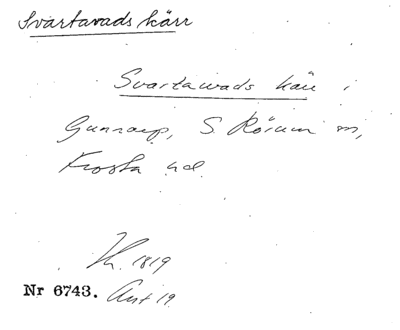 Svartavads kärr
Svartawads kärr i
Gunnarp, S. Rörum sn,
Frosta hd.
Th. 1819
Nr 6743. Avt 19.